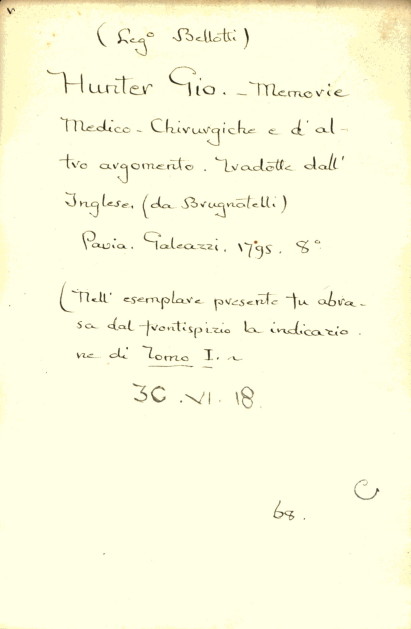 (Leg° Bellotti)
Hunter Gio. - Memorie
Medico - Chirurgiche e d'al-
tro argomento. Tradotte dall'
Inglese. (da Brugnatelli)
Pavia. Galeazzi. 1795. 8°
(Nell' esemplare presente fu abra-
sa dal frontispizio la indicazio-
ne di Tomo I.
3C. VI. 18
C
68.